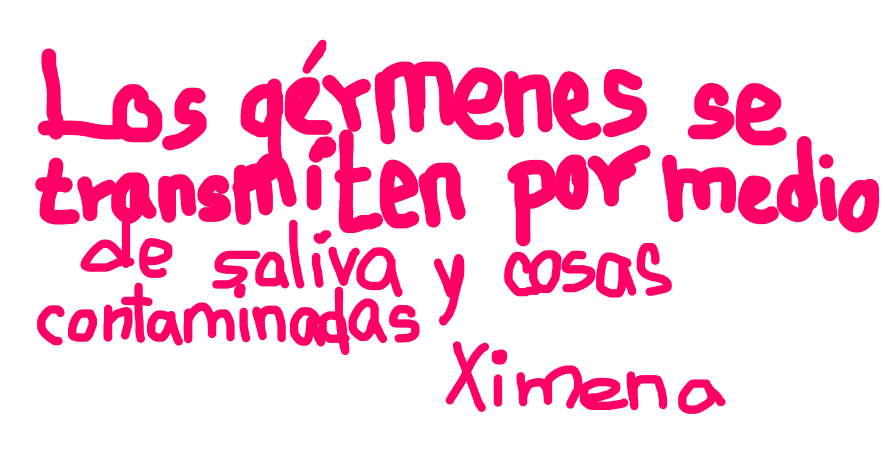 Los gérmenes se
transmiten por medio
de saliva y cosas
contaminadas
Ximena